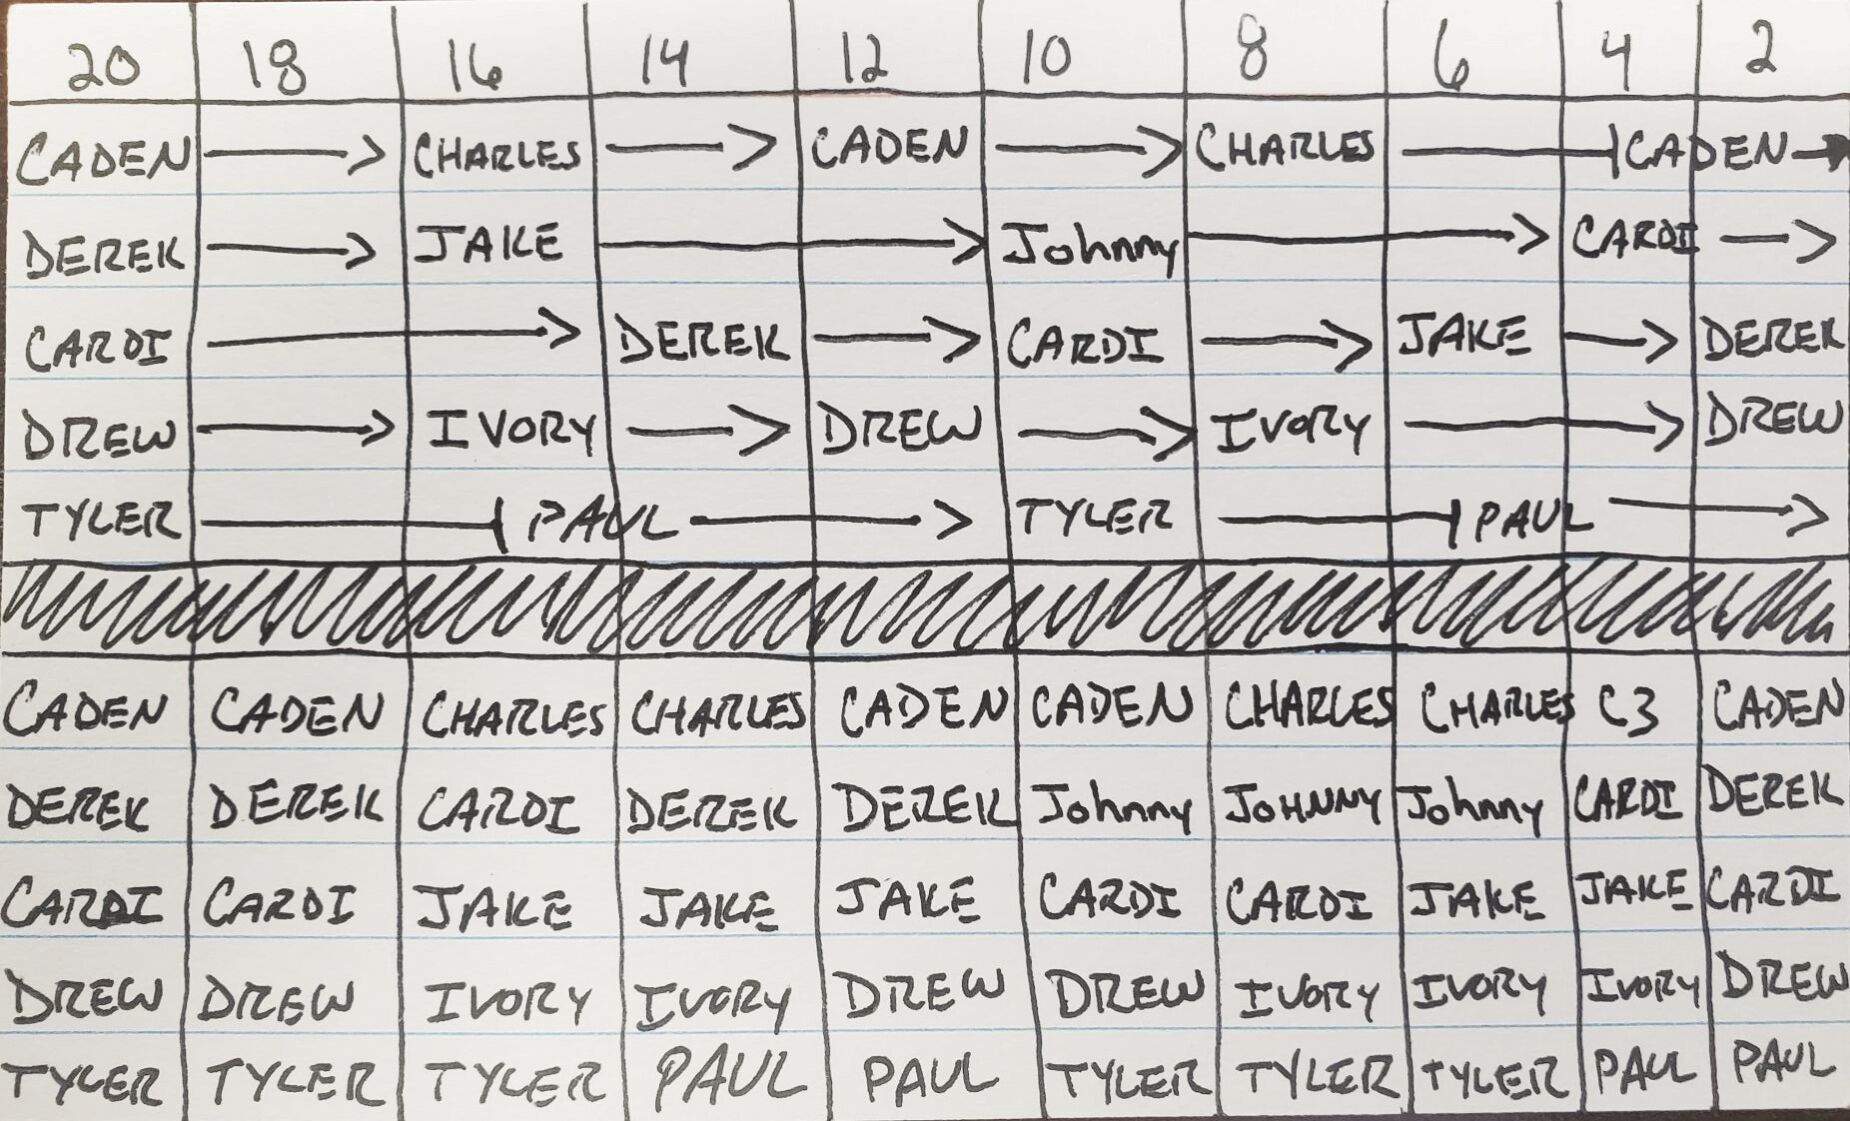 20 18 16 14 12 10 8 6 4 2
CADEN CHARLES CADEN CHARLES CADEN
DEREK JAKE Johnny CARDI
CARDI DEREK CARDI JAKE DEREK
DREW IVORY DREW IVORY DREW
TYLER PAUL TYLER PAUL
CADEN CADEN CHARLES CHARLES CADEN CADEN CHARLES CHARLES C3 CADEN
DEREK DEREK CARDI DEREK DEREK Johnny JOHNNY Johnny CARDI DEREK
CARDI CARDI JAKE JAKE JAKE CARDI CARDI JAKE JAKE CARDI
DREW DREW IVORY IVORY DREW DREW IVORY IVORY IVORY DREW
TYLER TYLER TYLER PAUL PAUL TYLER TYLER TYLER PAUL PAUL